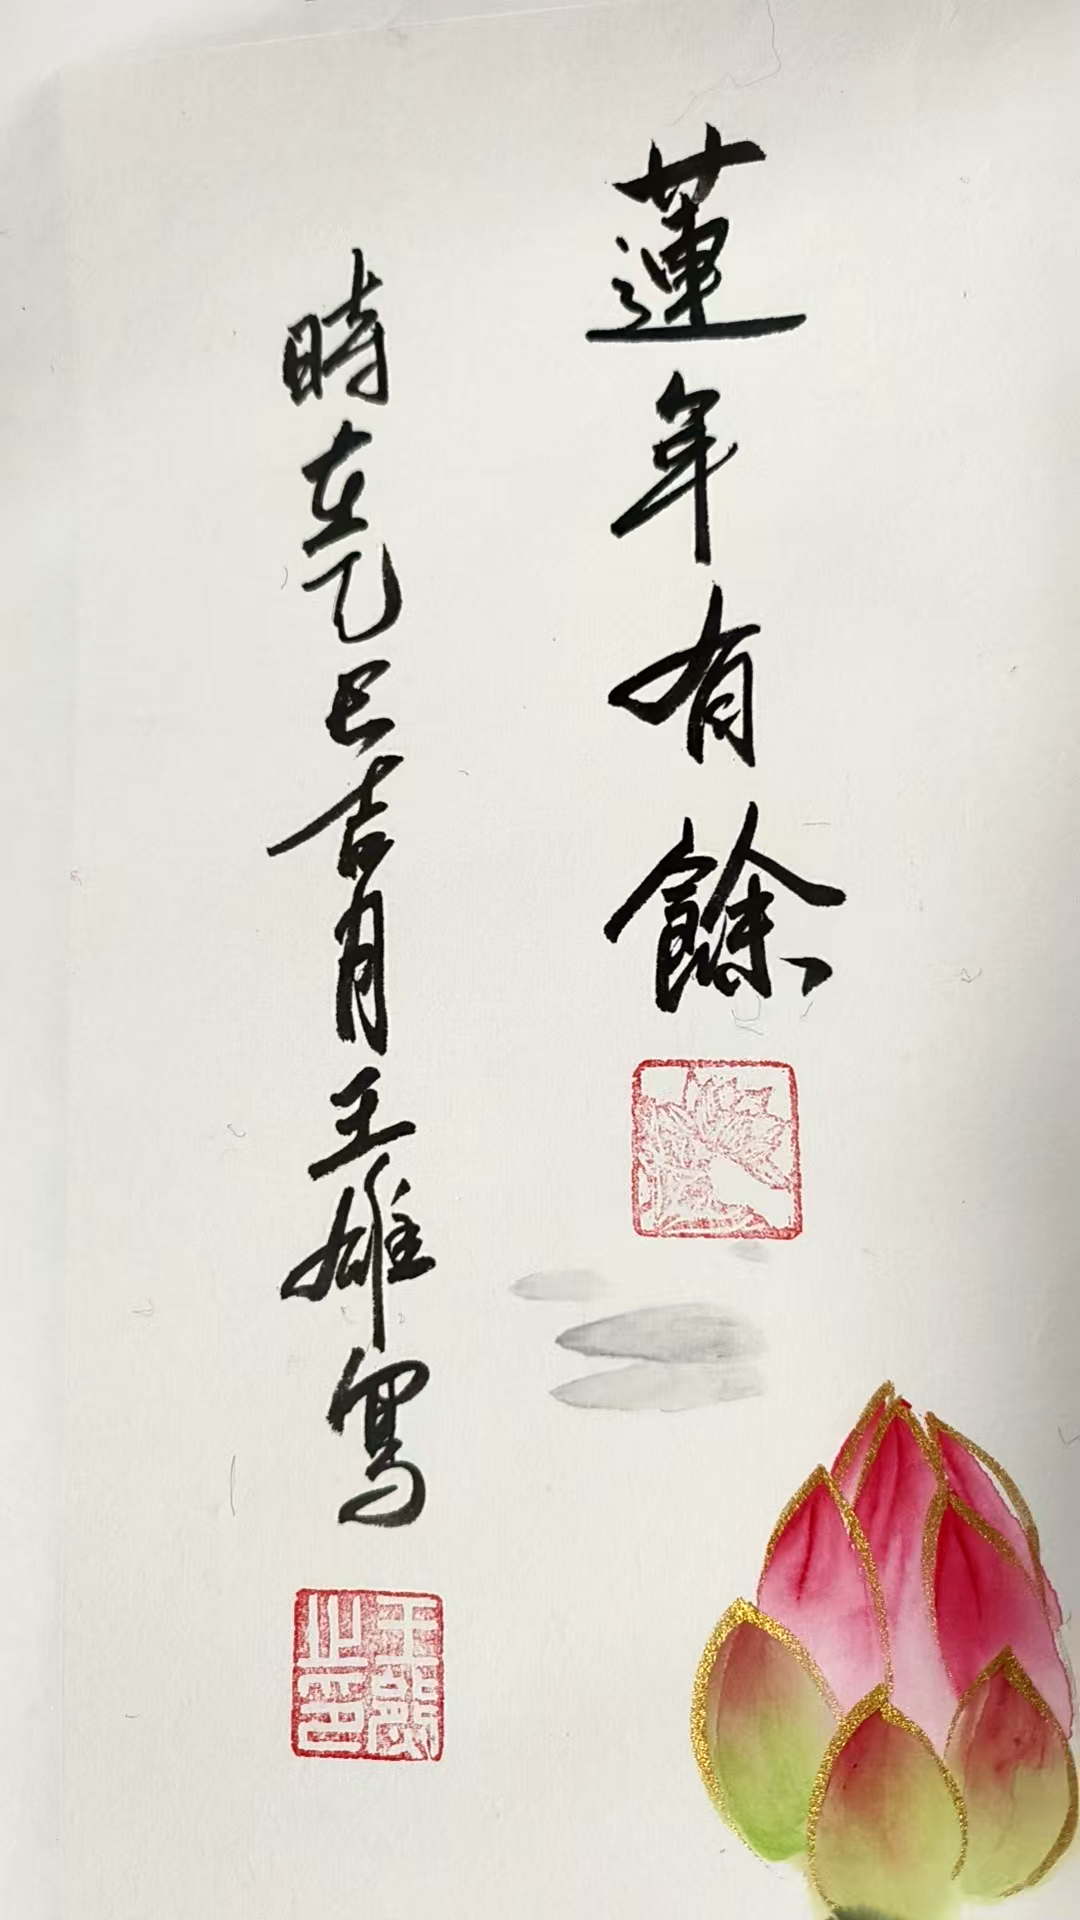 蓮年有餘
時在乙巳吉月王雄寫